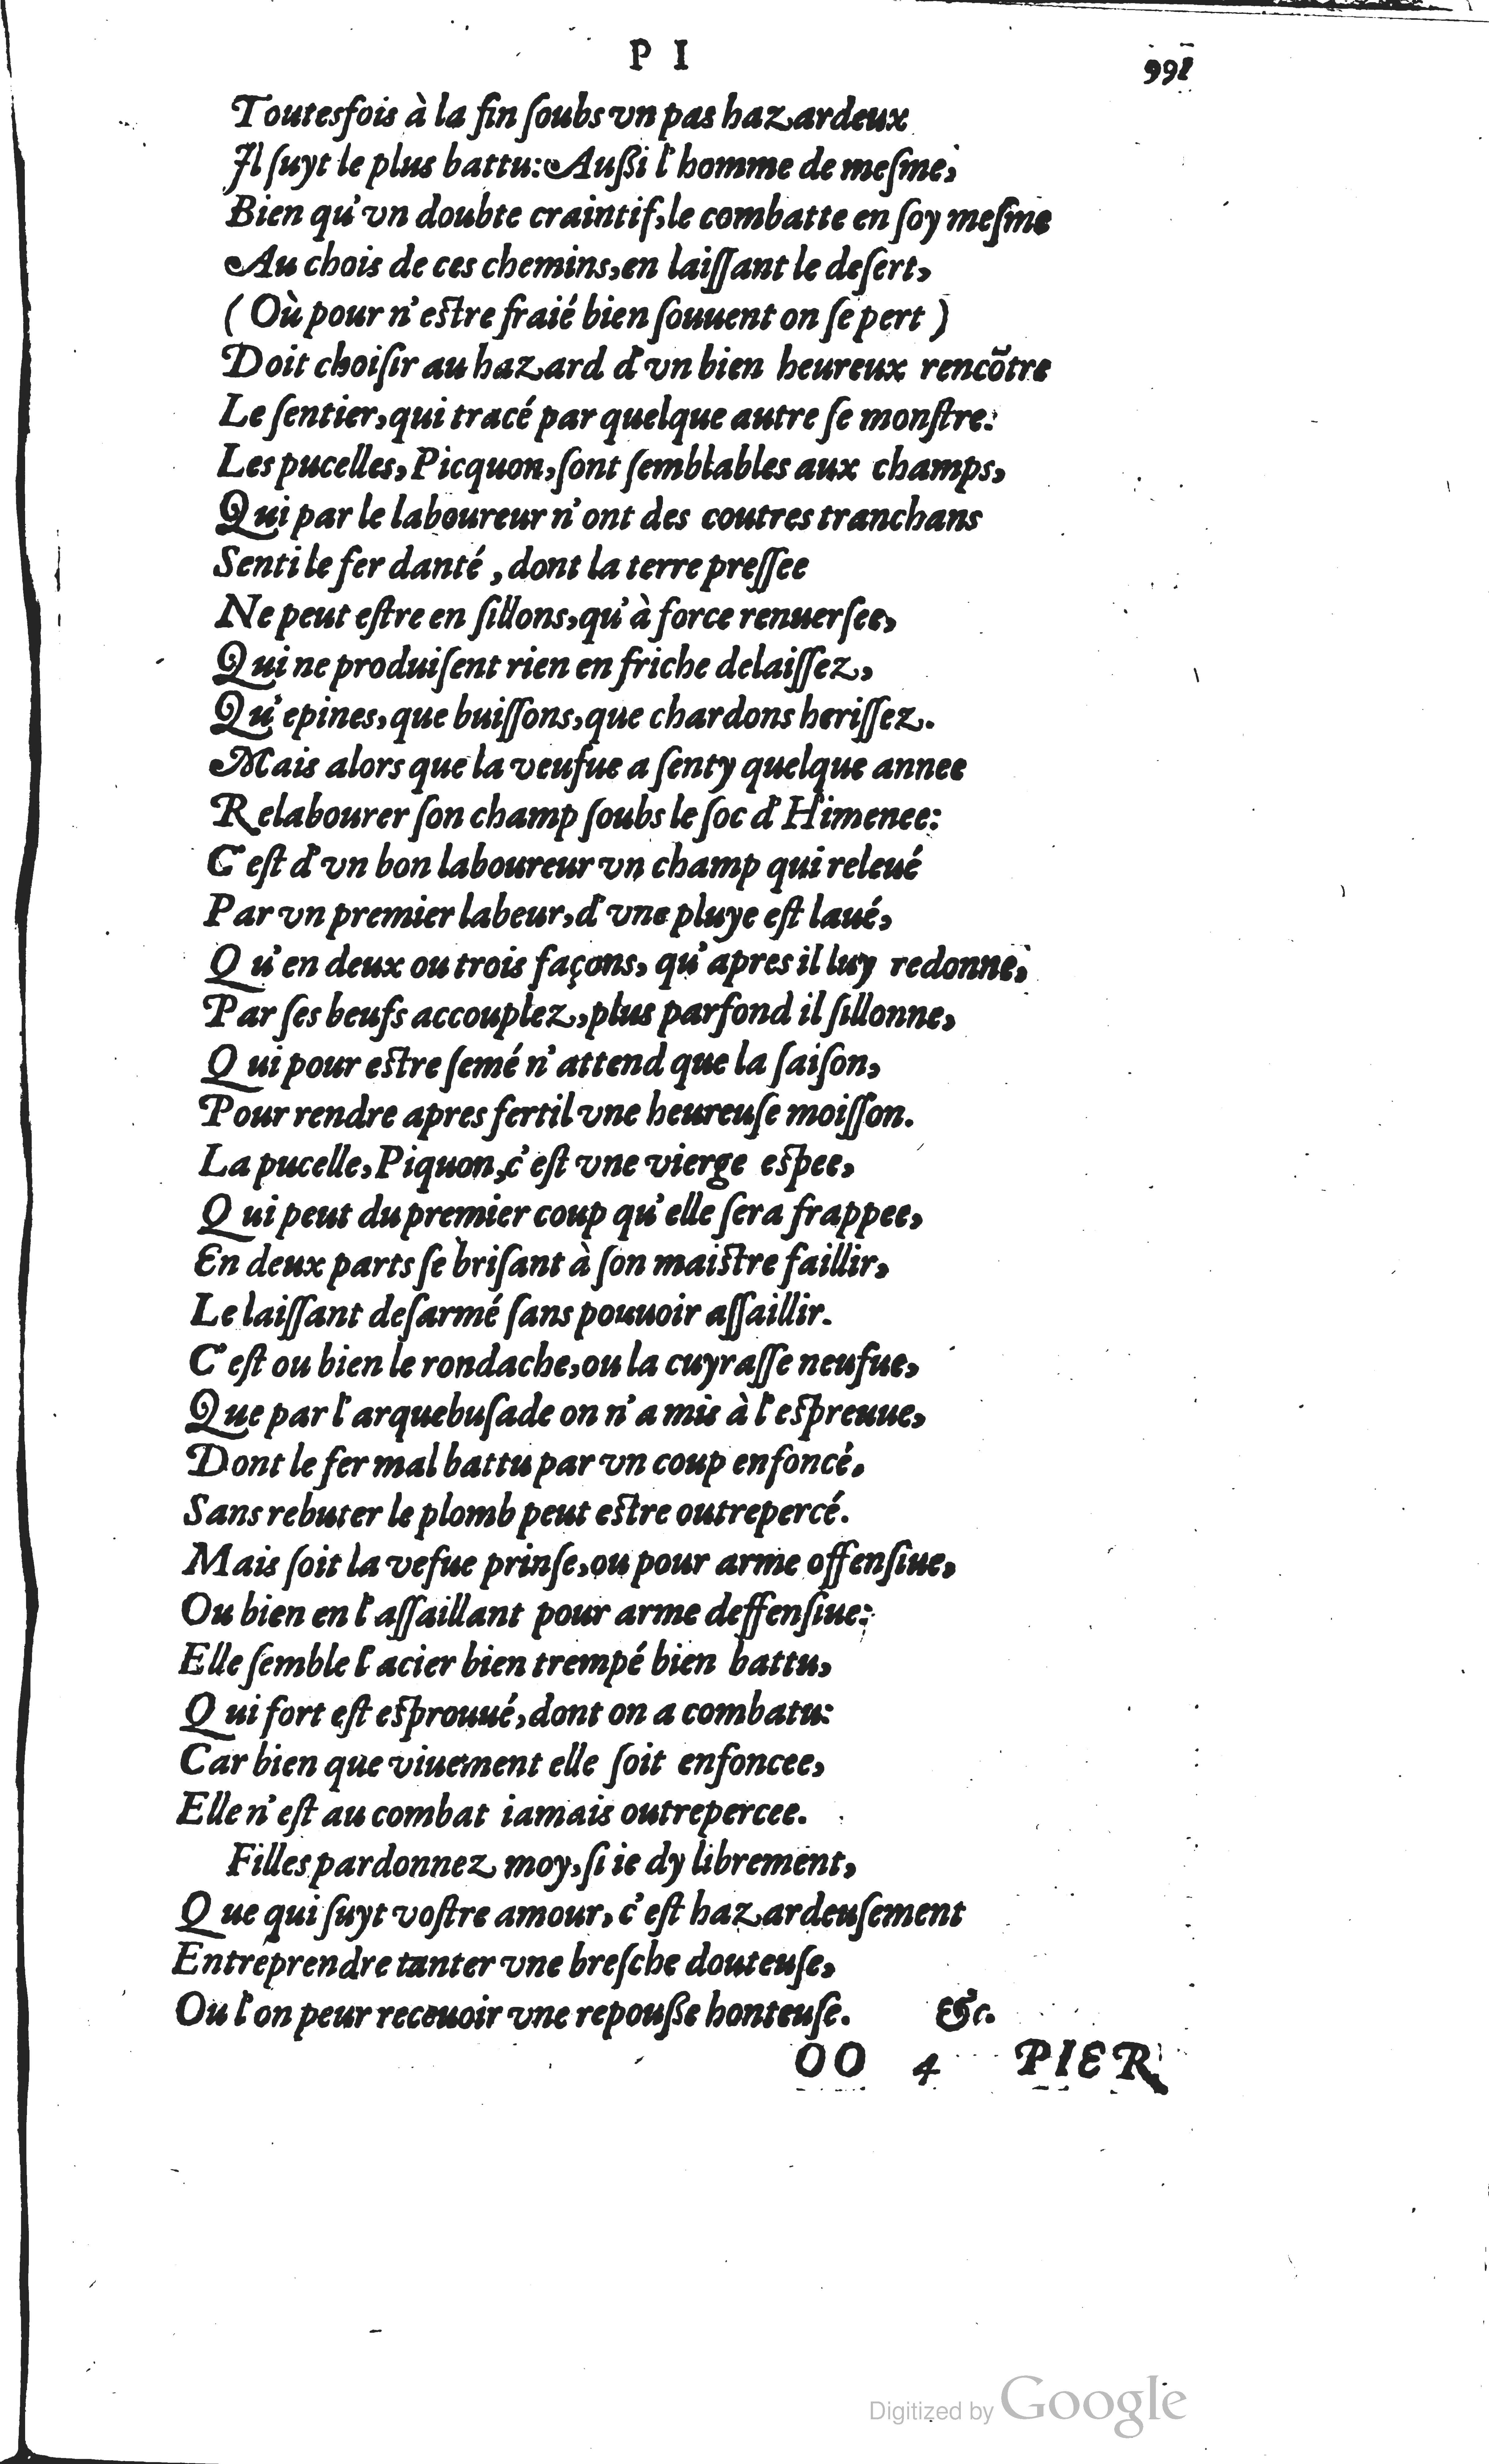 P I
991
Toutesfois à la fin ſoubs vn pas hazardeux
Il ſuyt le plus battu: Außi l'homme de meſme,
Bien qu'vn doubte craintif, le combatte en ſoy meſme
Au chois de ces chemins, en laiſſant le deſert,
(Où pour n'eſtre fraié bien ſouuent on ſe pert)
Doit choiſir au hazard d'vn bien heureux rencõtre
Le ſentier, qui tracé par quelque autre ſe monſtre:
Les pucelles, Picquon, ſont ſemblables aux champs,
Qui par le laboureur n'ont des coutres tranchans
Senti le fer danté, dont la terre preſſee
Ne peut eſtre en ſillons, qu'à force renuerſee,
Qui ne produiſent rien en friche delaiſſez,
Qu'epines, que buiſſons, que chardons heriſſez.
Mais alors que la veufue a ſenty quelque annee
Relabourer ſon champ ſoubs le ſoc d'Himenee:
C'eſt d'vn bon laboureur vn champ qui releué
Par vn premier labeur, d'vne pluye eſt laué,
Qu'en deux ou trois façons, qu'apres il luy redonne,
Par ſes beufs accouplez, plus parfond il ſillonne,
Qui pour eſtre ſemé n'attend que la ſaiſon,
Pour rendre apres fertil vne heureuſe moiſſon.
La pucelle, Piquon, c'eſt vne vierge eſpee,
Qui peut du premier coup qu'elle ſera frappee,
En deux parts ſe briſant à ſon maiſtre faillir,
Le laiſſant deſarmé ſans pouuoir aſſaillir.
C'eſt ou bien le rondache, ou la cuyraſſe neufue,
Que par l'arquebuſade on n'a mis à l'eſpreuue,
Dont le fer mal battu par vn coup enfoncé,
Sans rebuter le plomb peut eſtre outrepercé.
Mais ſoit la vefue prinſe, ou pour arme offenſiue,
Ou bien en l'aſſaillant pour arme deffenſiue:
Elle ſemble l'acier bien trempé bien battu,
Qui fort eſt eſprouué, dont on a combatu:
Car bien que viuement elle ſoit enfoncee,
Elle n'eſt au combat iamais outrepercee.
Filles pardonnez moy, ſi ie dy librement,
Que qui ſuyt voſtre amour, c'eſt hazardeuſement
Entreprendre tanter vne breſche douteuſe,
Ou l'on peur receuoir vne repouße honteuſe. &c.
OO 4 PIER
Digitized by Google